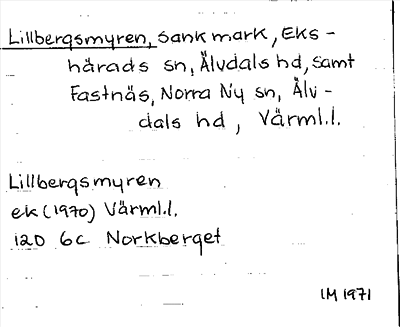 Lillbergsmyren, sank mark, Eks-
härads sn, Älvdals hd, samt
Fastnäs, Norra Ny sn, Älv-
dals hd, Värml.l.
Lillbergsmyren
ek (1970) Värml.l.
12D 6c Norkberget
IM 1971